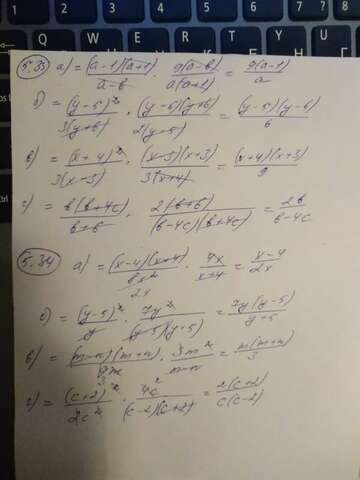 5.33 а) = (a-1)(a+1)/(a-b) · 9(a-b)/(a(a+1)) = 9(a-1)/a
б) = (y-5)²/(3(y+6)) · (y-6)(y+6)/(2(y-5)) = (y-5)(y-6)/6
в) = (x+4)²/(3(x-3)) · (x-3)(x+3)/(3(x+4)) = (x+4)(x+3)/9
г) = b(b+4c)/(b+6) · 2(b+6)/((b-4c)(b+4c)) = 2b/(b-4c)
5.34 а) = (x-4)(x+4)/(8x²) · 4x/(x+4) = (x-4)/(2x)
2x
б) = (y-5)²/y · 7y²/((y-5)(y+5)) = 7y(y-5)/(y+5)
в) = (m-n)(m+n)/(9m) · 3m²/(m-n) = m(m+n)/3
3
г) = (c+2)²/(2c²) · 4c/((c-2)(c+2)) = 2(c+2)/(c(c-2))